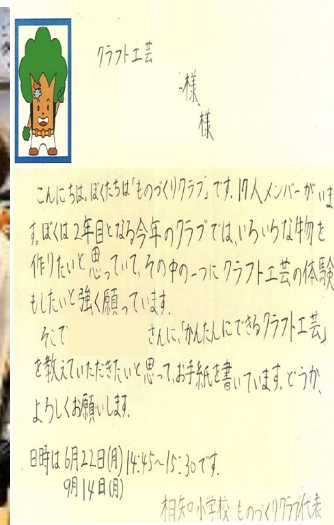 クラフト工芸
様
様
こんにちは。ぼくたちは「ものづくりクラブ」です。17人メンバーがいま
す。ぼくは2年目となる今年のクラブでは、いろいろな物を
作りたいと思っていて、その中の一つにクラフト工芸の体験
もしたいと強く願っています。
そこで さんに、「かんたんにできるクラフト工芸」
を教えていただきたいと思って、お手紙を書いています。どうか、
よろしくお願いします。
日時は6月22日(月)14:45〜15:30です。
9月14日(月)
相知小学校 ものづくりクラブ代表